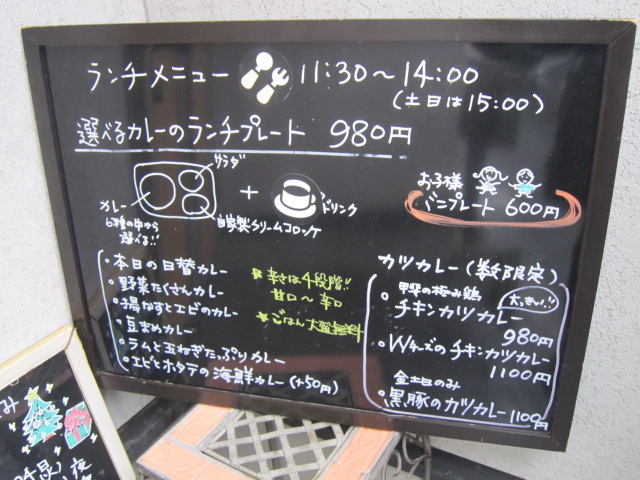 ランチメニュー 11:30～14:00
(土日は15:00)
選べるカレーのランチプレート 980円
サラダ
カレー
6種の中から
選べる!!
自家製クリームコロッケ
+
ドリンク
お子様
バニプレート 600円
・本日の日替カレー
・野菜たくさんカレー
・揚なすとエビのカレー
・豆まめカレー
・ラムと玉ねぎたっぷりカレー
・エビとホタテの海鮮カレー(+50円)
辛さは4段階!!
甘口～辛口
ごはん大盛無料
カツカレー(数限定)
・甲斐の極み鶏
チキンカツカレー
大っきい!!
980円
・Wチーズのチキンカツカレー
1100円
金土日のみ
・黒豚のカツカレー 1100円
み
夜